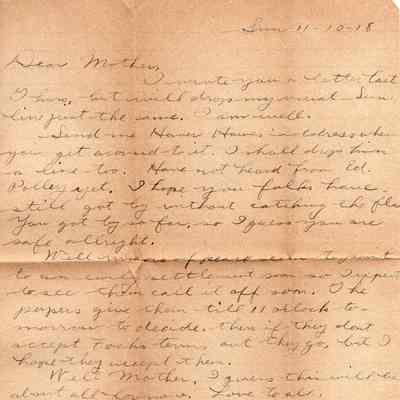 Sun 11-10-18
Dear Mother,
I wrote you a letter last
Thurs, but will drop my usual Sun.
line just the same. I am well.
Send me Homer Hawes address when
you get around to it. I shall drop him
a line too. Have not heard from Ed.
Polley yet. I hope you folks have
still got by without catching the flu
You got by so far, so I guess you are
safe allright.
Well rumors of peace seem to point
to an early settlement soon so I expect
to see them call it off soon. The
papers give them till 11 oclock to-
morrow to decide. then if they dont
accept Fochs terms out they go, but I
hope they accept them.
Well Mother, I guess this will be
about all for now. Love to all.